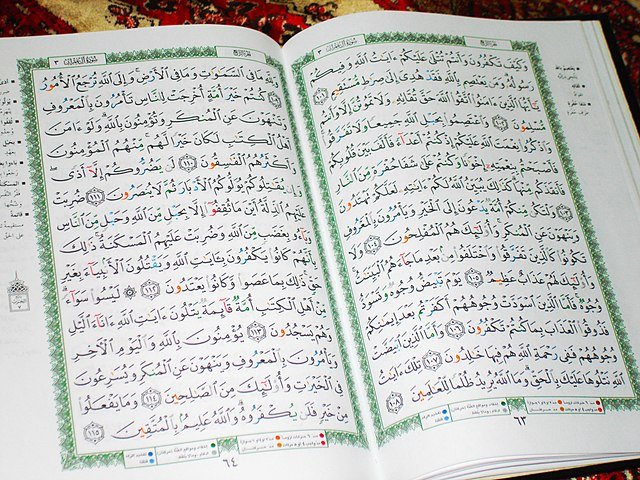 سُورَةُ آلِ عِمْرَان ٣
وَكَيْفَ تَكْفُرُونَ وَأَنتُمْ تُتْلَىٰ عَلَيْكُمْ ءَايَٰتُ ٱللَّهِ وَفِيكُمْ
رَسُولُهُۥ وَمَن يَعْتَصِم بِٱللَّهِ فَقَدْ هُدِىَ إِلَىٰ صِرَٰطٍ مُّسْتَقِيمٍ ١٠١
يَٰٓأَيُّهَا ٱلَّذِينَ ءَامَنُوا۟ ٱتَّقُوا۟ ٱللَّهَ حَقَّ تُقَاتِهِۦ وَلَا تَمُوتُنَّ إِلَّا وَأَنتُم
مُّسْلِمُونَ ١٠٢ وَٱعْتَصِمُوا۟ بِحَبْلِ ٱللَّهِ جَمِيعًا وَلَا تَفَرَّقُوا۟
وَٱذْكُرُوا۟ نِعْمَتَ ٱللَّهِ عَلَيْكُمْ إِذْ كُنتُمْ أَعْدَآءً فَأَلَّفَ بَيْنَ قُلُوبِكُمْ
فَأَصْبَحْتُم بِنِعْمَتِهِۦٓ إِخْوَٰنًا وَكُنتُمْ عَلَىٰ شَفَا حُفْرَةٍ مِّنَ ٱلنَّارِ
فَأَنقَذَكُم مِّنْهَا كَذَٰلِكَ يُبَيِّنُ ٱللَّهُ لَكُمْ ءَايَٰتِهِۦ لَعَلَّكُمْ تَهْتَدُونَ
١٠٣ وَلْتَكُن مِّنكُمْ أُمَّةٌ يَدْعُونَ إِلَى ٱلْخَيْرِ وَيَأْمُرُونَ بِٱلْمَعْرُوفِ
وَيَنْهَوْنَ عَنِ ٱلْمُنكَرِ وَأُو۟لَٰٓئِكَ هُمُ ٱلْمُفْلِحُونَ ١٠٤ وَلَا
تَكُونُوا۟ كَٱلَّذِينَ تَفَرَّقُوا۟ وَٱخْتَلَفُوا۟ مِنۢ بَعْدِ مَا جَآءَهُمُ ٱلْبَيِّنَٰتُ
وَأُو۟لَٰٓئِكَ لَهُمْ عَذَابٌ عَظِيمٌ ١٠٥ يَوْمَ تَبْيَضُّ وُجُوهٌ وَتَسْوَدُّ
وُجُوهٌ فَأَمَّا ٱلَّذِينَ ٱسْوَدَّتْ وُجُوهُهُمْ أَكَفَرْتُم بَعْدَ إِيمَٰنِكُمْ
فَذُوقُوا۟ ٱلْعَذَابَ بِمَا كُنتُمْ تَكْفُرُونَ ١٠٦ وَأَمَّا ٱلَّذِينَ ٱبْيَضَّتْ
وُجُوهُهُمْ فَفِى رَحْمَةِ ٱللَّهِ هُمْ فِيهَا خَٰلِدُونَ ١٠٧ تِلْكَ ءَايَٰتُ
ٱللَّهِ نَتْلُوهَا عَلَيْكَ بِٱلْحَقِّ وَمَا ٱللَّهُ يُرِيدُ ظُلْمًا لِّلْعَٰلَمِينَ ١٠٨
٦٣
سُورَةُ آلِ عِمْرَان ٣
وَلِلَّهِ مَا فِى ٱلسَّمَٰوَٰتِ وَمَا فِى ٱلْأَرْضِ وَإِلَى ٱللَّهِ تُرْجَعُ ٱلْأُمُورُ
١٠٩ كُنتُمْ خَيْرَ أُمَّةٍ أُخْرِجَتْ لِلنَّاسِ تَأْمُرُونَ بِٱلْمَعْرُوفِ
وَتَنْهَوْنَ عَنِ ٱلْمُنكَرِ وَتُؤْمِنُونَ بِٱللَّهِ وَلَوْ ءَامَنَ
أَهْلُ ٱلْكِتَٰبِ لَكَانَ خَيْرًا لَّهُم مِّنْهُمُ ٱلْمُؤْمِنُونَ
وَأَكْثَرُهُمُ ٱلْفَٰسِقُونَ ١١٠ لَن يَضُرُّوكُمْ إِلَّآ أَذًى
وَإِن يُقَٰتِلُوكُمْ يُوَلُّوكُمُ ٱلْأَدْبَارَ ثُمَّ لَا يُنصَرُونَ ١١١ ضُرِبَتْ
عَلَيْهِمُ ٱلذِّلَّةُ أَيْنَ مَا ثُقِفُوٓا۟ إِلَّا بِحَبْلٍ مِّنَ ٱللَّهِ وَحَبْلٍ مِّنَ ٱلنَّاسِ
وَبَآءُو بِغَضَبٍ مِّنَ ٱللَّهِ وَضُرِبَتْ عَلَيْهِمُ ٱلْمَسْكَنَةُ ذَٰلِكَ
بِأَنَّهُمْ كَانُوا۟ يَكْفُرُونَ بِـَٔايَٰتِ ٱللَّهِ وَيَقْتُلُونَ ٱلْأَنۢبِيَآءَ بِغَيْرِ
حَقٍّ ذَٰلِكَ بِمَا عَصَوا۟ وَّكَانُوا۟ يَعْتَدُونَ ١١٢ لَيْسُوا۟ سَوَآءً
مِّنْ أَهْلِ ٱلْكِتَٰبِ أُمَّةٌ قَآئِمَةٌ يَتْلُونَ ءَايَٰتِ ٱللَّهِ ءَانَآءَ ٱلَّيْلِ
وَهُمْ يَسْجُدُونَ ١١٣ يُؤْمِنُونَ بِٱللَّهِ وَٱلْيَوْمِ ٱلْءَاخِرِ
وَيَأْمُرُونَ بِٱلْمَعْرُوفِ وَيَنْهَوْنَ عَنِ ٱلْمُنكَرِ وَيُسَٰرِعُونَ
فِى ٱلْخَيْرَٰتِ وَأُو۟لَٰٓئِكَ مِنَ ٱلصَّٰلِحِينَ ١١٤ وَمَا يَفْعَلُوا۟
مِنْ خَيْرٍ فَلَن يُكْفَرُوهُ وَٱللَّهُ عَلِيمٌۢ بِٱلْمُتَّقِينَ ١١٥
٦٤